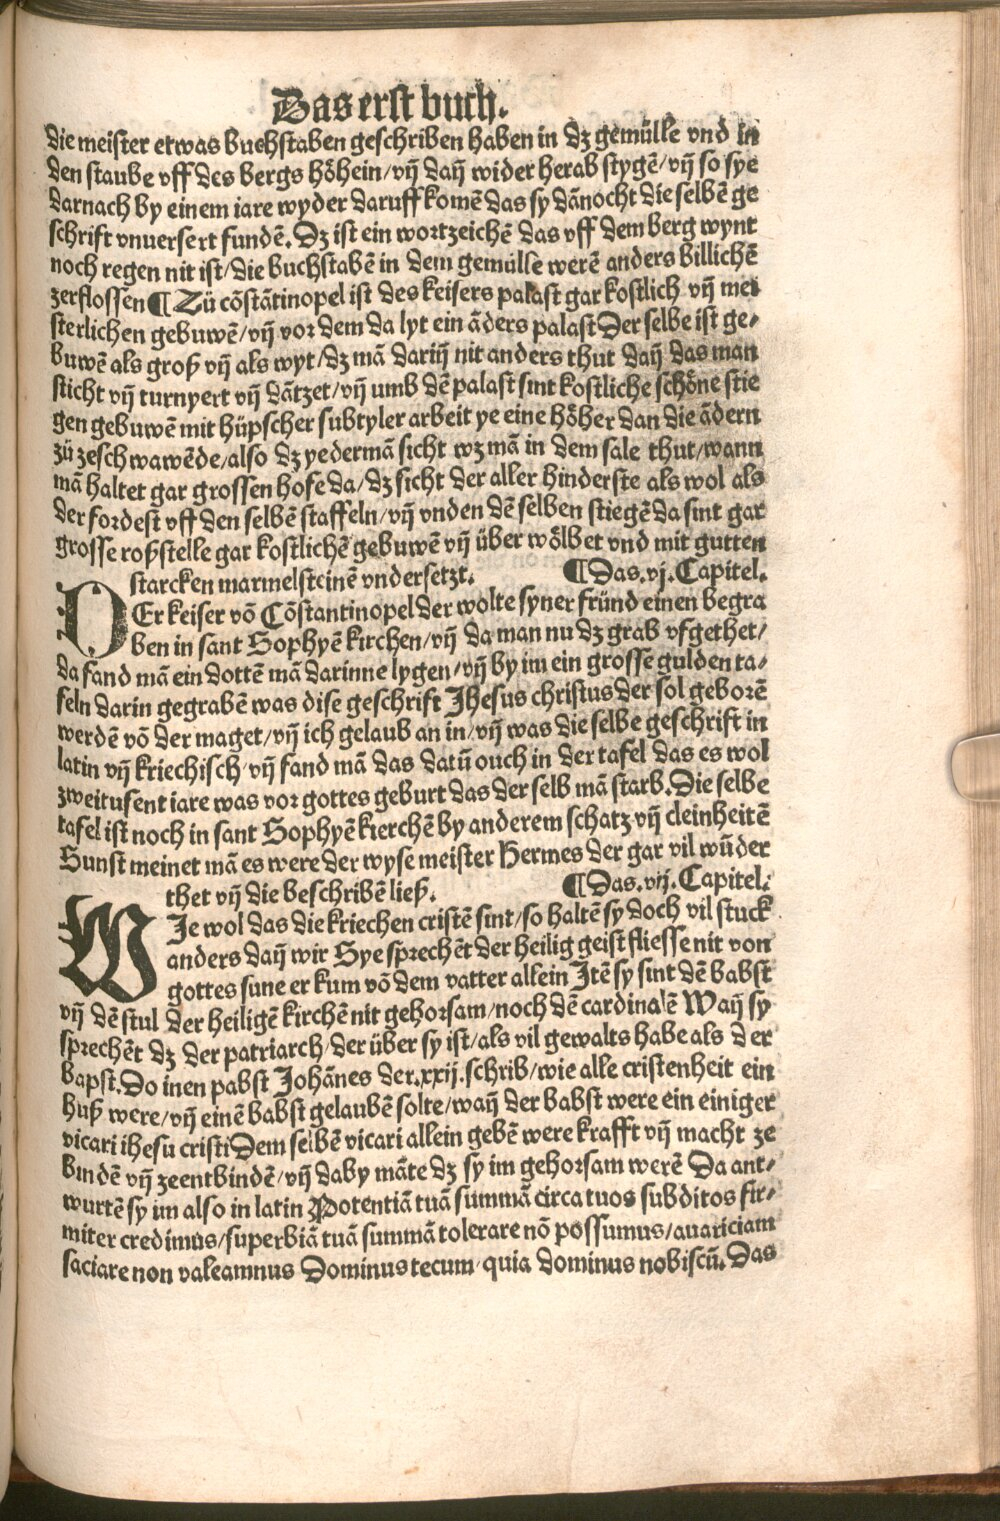 Das erst buch.
die meister etwas buchstaben geschriben haben in dz gemülle vnd in
den staube vff des bergs höhein/vñ dañ wider herab stygē/vñ so sye
darnach by einem iare wyder daruff komē das sy dānocht die selbē ge
schrift vnuersert fundē. Dz ist ein wortzeichē das vff dem berg wynt
noch regen nit ist/die buchstabē in dem gemülle werē anders billichē
zerflossen ¶ Zü cōstātinopel ist des keisers palast gar kostlich vñ mei
sterlichen gebuwē/vñ vor dem da lyt ein āders palast Der selbe ist ge⸗
buwē als groß vñ als wyt/dz mā dariñ nit anders thut dañ das man
sticht vñ turnyert vñ dātzet/vñ umb dē palast sint kostliche schöne stie
gen gebuwē mit hüpscher subtyler arbeit ye eine höher dan die ādern
zü zeschwawēde/also dz yedermā sicht wz mā in dem sale thut/wann
mā haltet gar grossen hofe da/dz sicht der aller hinderste als wol als
der fordest vff den selbē staffeln/vñ vnden dē selben stiegē da sint gar
grosse roßstelle gar kostlichē gebuwē vñ über wölbet vnd mit gutten
starcken marmelsteinē vndersetzt. ¶ Das. vj. Capitel.
DEr keiser vō Cōstantinopel der wolte syner fründ einen begra
ben in sant Sophyē kirchen/vñ da man nu dz grab vfgethet/
da fand mā ein dottē mā darinne lygen/vñ by im ein grosse gulden ta⸗
feln darin gegrabē was dise geschrift Jhesus christus der sol geborē
werdē vō der maget/vñ ich gelaub an in/vñ was die selbe geschrift in
latin vñ kriechisch/vñ fand mā das datū ouch in der tafel das es wol
zweitusent iare was vor gottes geburt das der selb mā starb. Die selbe
tafel ist noch in sant Sophyē kierchē by anderem schatz vñ cleinheitē
Sunst meinet mā es were der wyse meister Hermes der gar vil wūder
thet vñ die beschribē ließ. ¶ Das. vij. Capitel.
WJe wol das die kriechen cristē sint/so haltē sy doch vil stuck
anders dañ wir Sye sprechēt der heilig geist fliesse nit von
gottes sune er kum vō dem vatter allein Jtē sy sint dē babst
vñ dē stul der heiligē kirchē nit gehorsam/noch dē cardinalē Wañ sy
sprechēt dz der patriarch/der über sy ist/als vil gewalts habe als der
bapst. Do inen pabst Johānes der. xxij. schrib/wie alle cristenheit ein
huß were/vñ einē babst gelaubē solte/wañ der babst were ein einiger
vicari ihesu cristi Dem selbē vicari allein gebē were krafft vñ macht ze
bindē vñ zeentbindē/vñ daby māte dz sy im gehorsam werē Da ant⸗
wurtē sy im also in latin Potentiā tuā summā circa tuos subditos fir⸗
miter credimus/superbiā tuā summā tolerare nō possumus/auariciam
saciare non valeamnus Dominus tecum/quia dominus nobiscū. Das